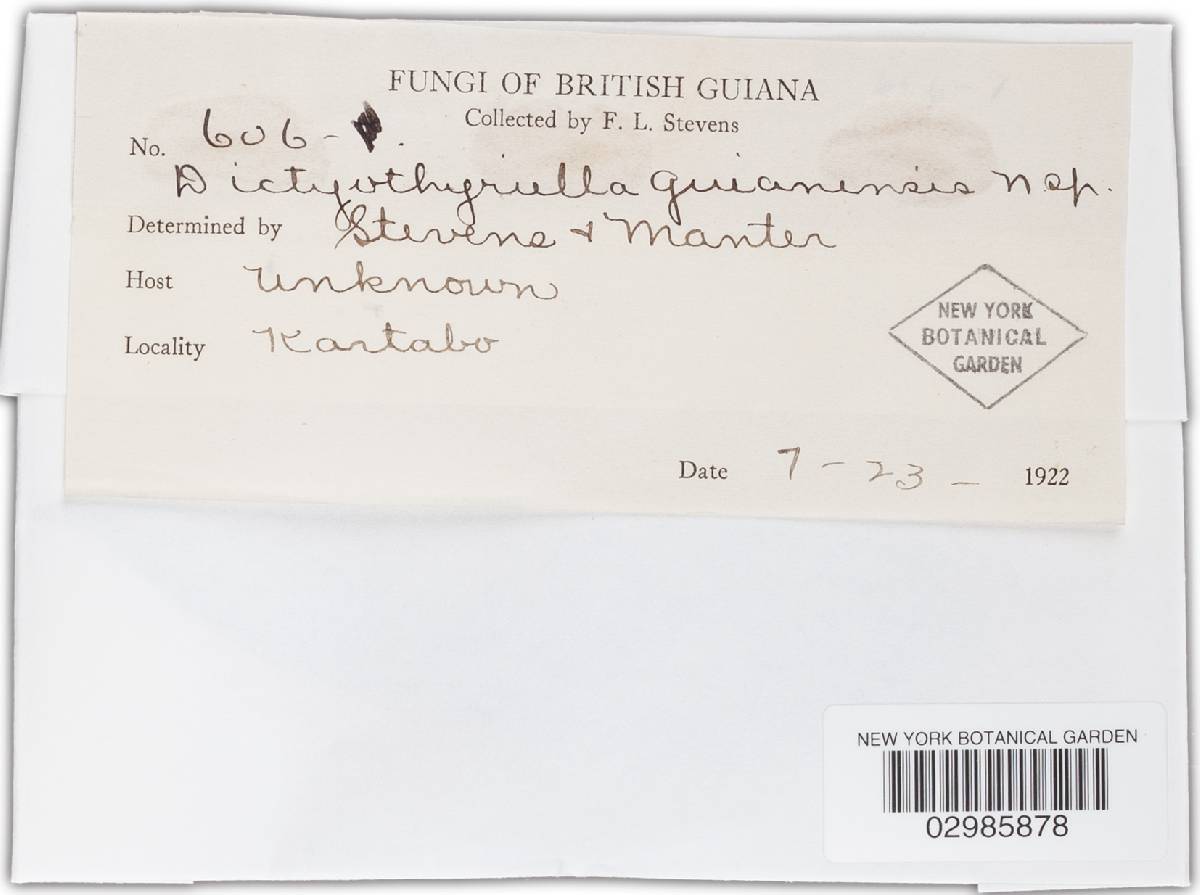 FUNGI OF BRITISH GUIANA
Collected by F. L. Stevens
No. 606-
Dictyothyriella guianensis n sp.
Determined by Stevens + Manter
Host Unknown
Locality Kartabo
NEW YORK
BOTANICAL
GARDEN
Date 7-23- 1922
NEW YORK BOTANICAL GARDEN
02985878